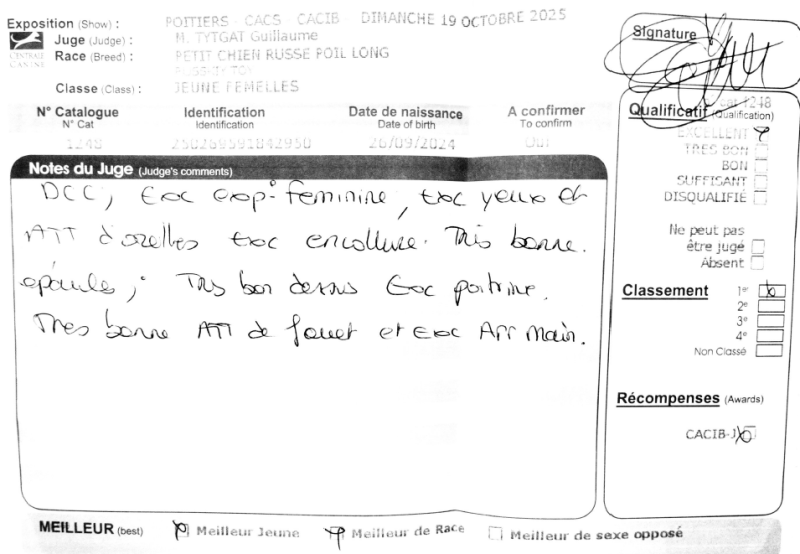 Exposition (Show) : POITIERS - CACS - CACIB DIMANCHE 19 OCTOBRE 2025
CENTRALE CANINE
Juge (Judge) : M. TYTGAT Guillaume
Race (Breed) : PETIT CHIEN RUSSE POIL LONG
RUSSKIY TOY
Classe (Class) : JEUNE FEMELLES
N° Catalogue Identification Date de naissance A confirmer
N° Cat Identification Date of birth To confirm
1248 250269591842950 26/09/2024 Oui
Notes du Juge (Judge's comments)
DCC, Exc exp° feminine, exc yeux et
ATT d'oreilles exc encollure. Très bonne
épaules, Très bon dessus Exc poitrine.
Très bonne ATT de fouet et Exc App main.
MEILLEUR (best) Meilleur Jeune Meilleur de Race Meilleur de sexe opposé
Signature
cat 1248
Qualificatif (Qualification)
EXCELLENT
TRES BON
BON
SUFFISANT
DISQUALIFIÉ
Ne peut pas
être jugé
Absent
Classement 1er
2e
3e
4e
Non Classé
Récompenses (Awards)
CACIB-J